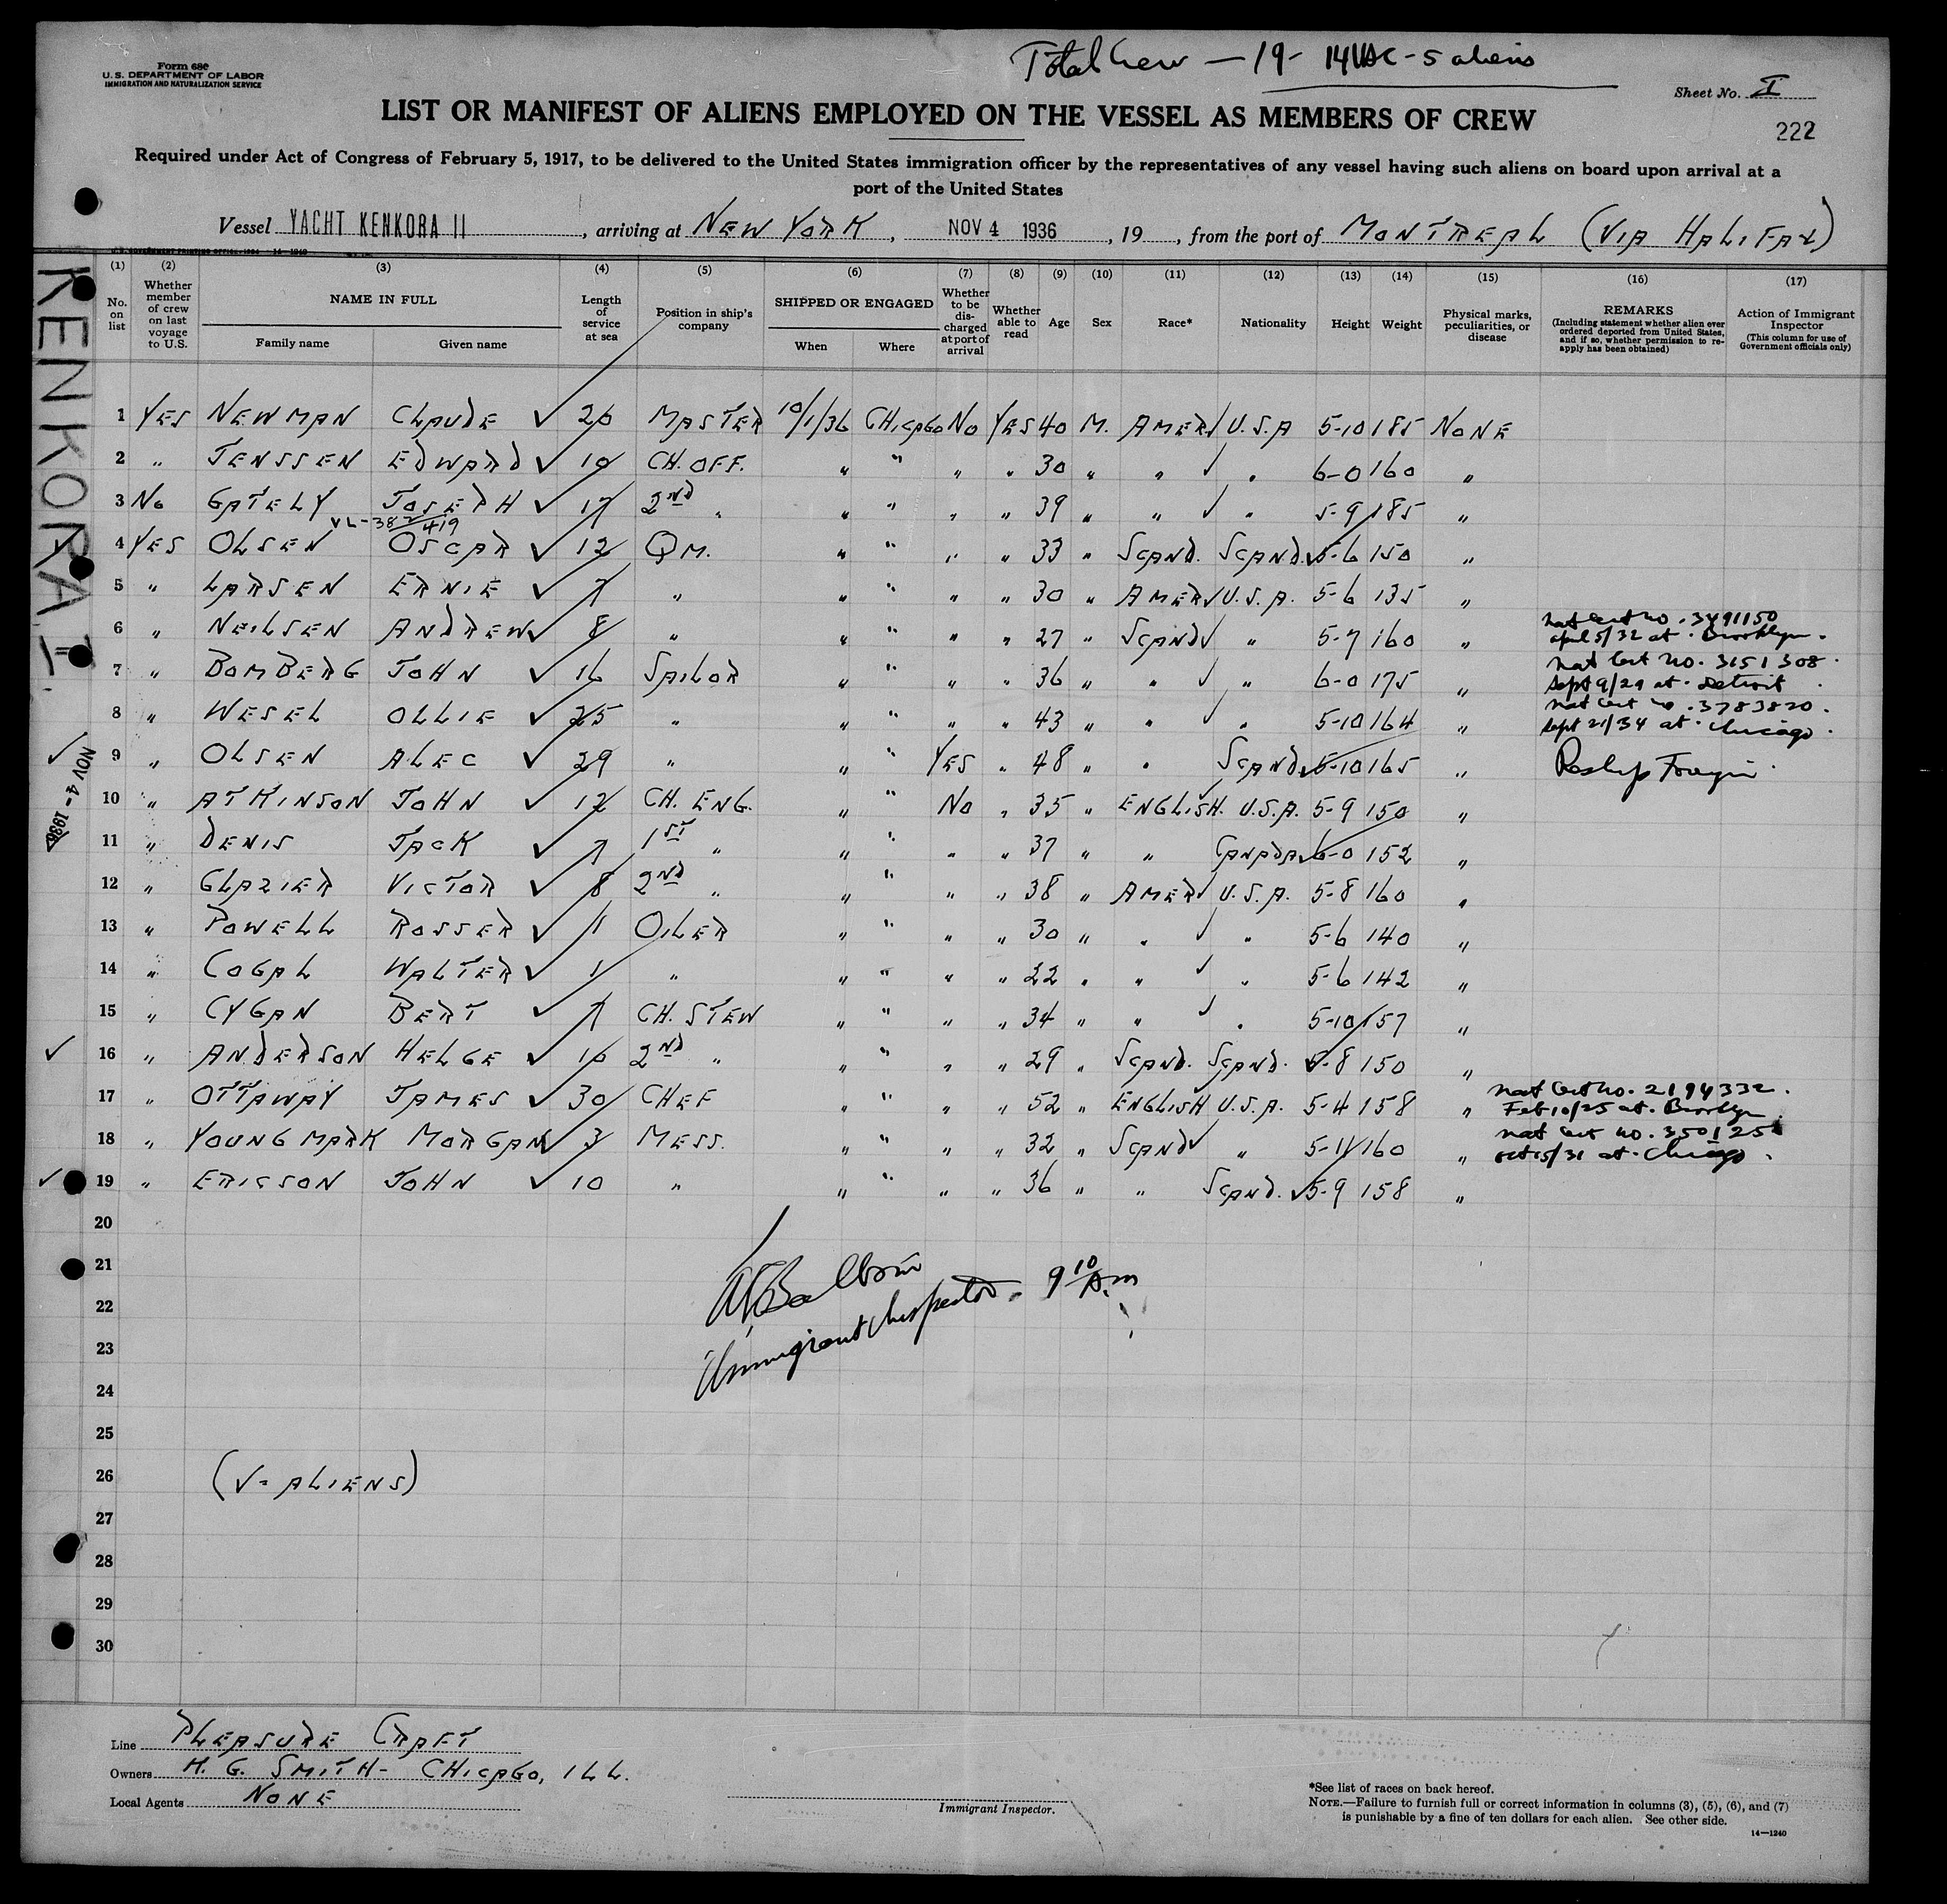 Total Crew — 19 - 14 USC - 5 aliens
Form 680
U.S. DEPARTMENT OF LABOR
IMMIGRATION AND NATURALIZATION SERVICE
Sheet No. I
LIST OR MANIFEST OF ALIENS EMPLOYED ON THE VESSEL AS MEMBERS OF CREW
222
Required under Act of Congress of February 5, 1917, to be delivered to the United States immigration officer by the representatives of any vessel having such aliens on board upon arrival at a
port of the United States
Vessel YACHT KENKORA II, arriving at NEW YORK, NOV 4 1936, 19, from the port of MONTREAL (VIA HALIFAX)
KENKORA II
(1) (2) (3) (4) (5) (6) (7) (8) (9) (10) (11) (12) (13) (14) (15) (16) (17)
No. on list
Whether member of crew on last voyage to U.S.
NAME IN FULL
Family name Given name
Length of service at sea
Position in ship's company
SHIPPED OR ENGAGED
When Where
Whether to be discharged at port of arrival
Whether able to read
Age
Sex
Race*
Nationality
Height
Weight
Physical marks, peculiarities, or disease
REMARKS
(Including statement whether alien ever ordered deported from United States, and if so, whether permission to reapply has been obtained)
Action of Immigrant Inspector
(This column for use of Government officials only)
1 YES NEWMAN CLAUDE ✓ 20 MASTER 10/1/36 CHICAGO NO YES 40 M. AMER ✓ U.S.A 5-10 185 NONE
2 " JENSSEN EDWARD ✓ 10 CH. OFF. " " " " 30 " " ✓ " 6-0 160 "
3 NO GATELY JOSEPH ✓ 17 2ND " " " " " 39 " " ✓ " 5-9 185 "
4 YES OLSEN OSCAR ✓ 12 QM. " " " " 33 " SCAND. SCAND. ✓ 5-6 150 "
5 " LARSEN ERNIE ✓ 7 " " " " " 30 " AMER ✓ U.S.A. 5-6 135 "
6 " NEILSEN ANDREW ✓ 8 " " " " " 27 " SCAND ✓ " 5-7 160 " nat cert no. 3491150
april 5/32 at Brooklyn.
7 " BOMBERG JOHN ✓ 16 SAILOR " " " " 36 " " ✓ " 6-0 175 " nat cert no. 3151308.
Sept 9/29 at Detroit.
8 " WESEL OLLIE ✓ 25 " " " " " 43 " " ✓ " 5-10 164 " nat cert no. 3783820.
Sept 21/34 at Chicago.
9 " OLSEN ALEC ✓ 29 " " " YES " 48 " " SCAND ✓ 5-10 165 "
NOV 4 - 1936
10 " ATKINSON JOHN ✓ 12 CH. ENG. " " NO " 35 " ENGLISH. U.S.A. 5-9 150 "
11 " DENIS JACK ✓ 7 1ST " " " " " 37 " " CANADA ✓ 6-0 152 "
12 " GLAZIER VICTOR ✓ 8 2ND " " " " " 38 " AMER ✓ U.S.A. 5-8 160 "
13 " POWELL ROSSER ✓ 1 OILER " " " " 30 " " ✓ " 5-6 140 "
14 " COGAL WALTER ✓ 1 " " " " " 22 " " ✓ " 5-6 142 "
15 " CYGAN BERT ✓ 7 CH. STEW " " " " 34 " " ✓ " 5-10 157 "
16 " ANDERSON HELGE ✓ 10 2ND " " " " " 29 " SCAND. SCAND. ✓ 5-8 150 "
17 " OTTAWAY JAMES ✓ 30 CHEF " " " " 52 " ENGLISH U.S.A. 5-4 158 " nat cert no. 2194332.
Feb 10/25 at Brooklyn
18 " YOUNGMARK MORGAN ✓ 3 MESS. " " " " 32 " SCAND ✓ " 5-11 160 " nat cert no. 350125
oct 15/31 at Chicago.
19 " ERICSON JOHN ✓ 10 " " " " " 36 " " SCAND. ✓ 5-9 158 "
20
21
22
23
24
25
26
27
28
29
30
Immigrant Inspector. 9 10 A.M
(✓ = ALIENS)
Line PLEASURE CRAFT
Owners H. G. SMITH - CHICAGO, ILL.
Local Agents NONE
Immigrant Inspector.
*See list of races on back hereof.
NOTE.—Failure to furnish full or correct information in columns (3), (5), (6), and (7)
is punishable by a fine of ten dollars for each alien. See other side.
14—1240